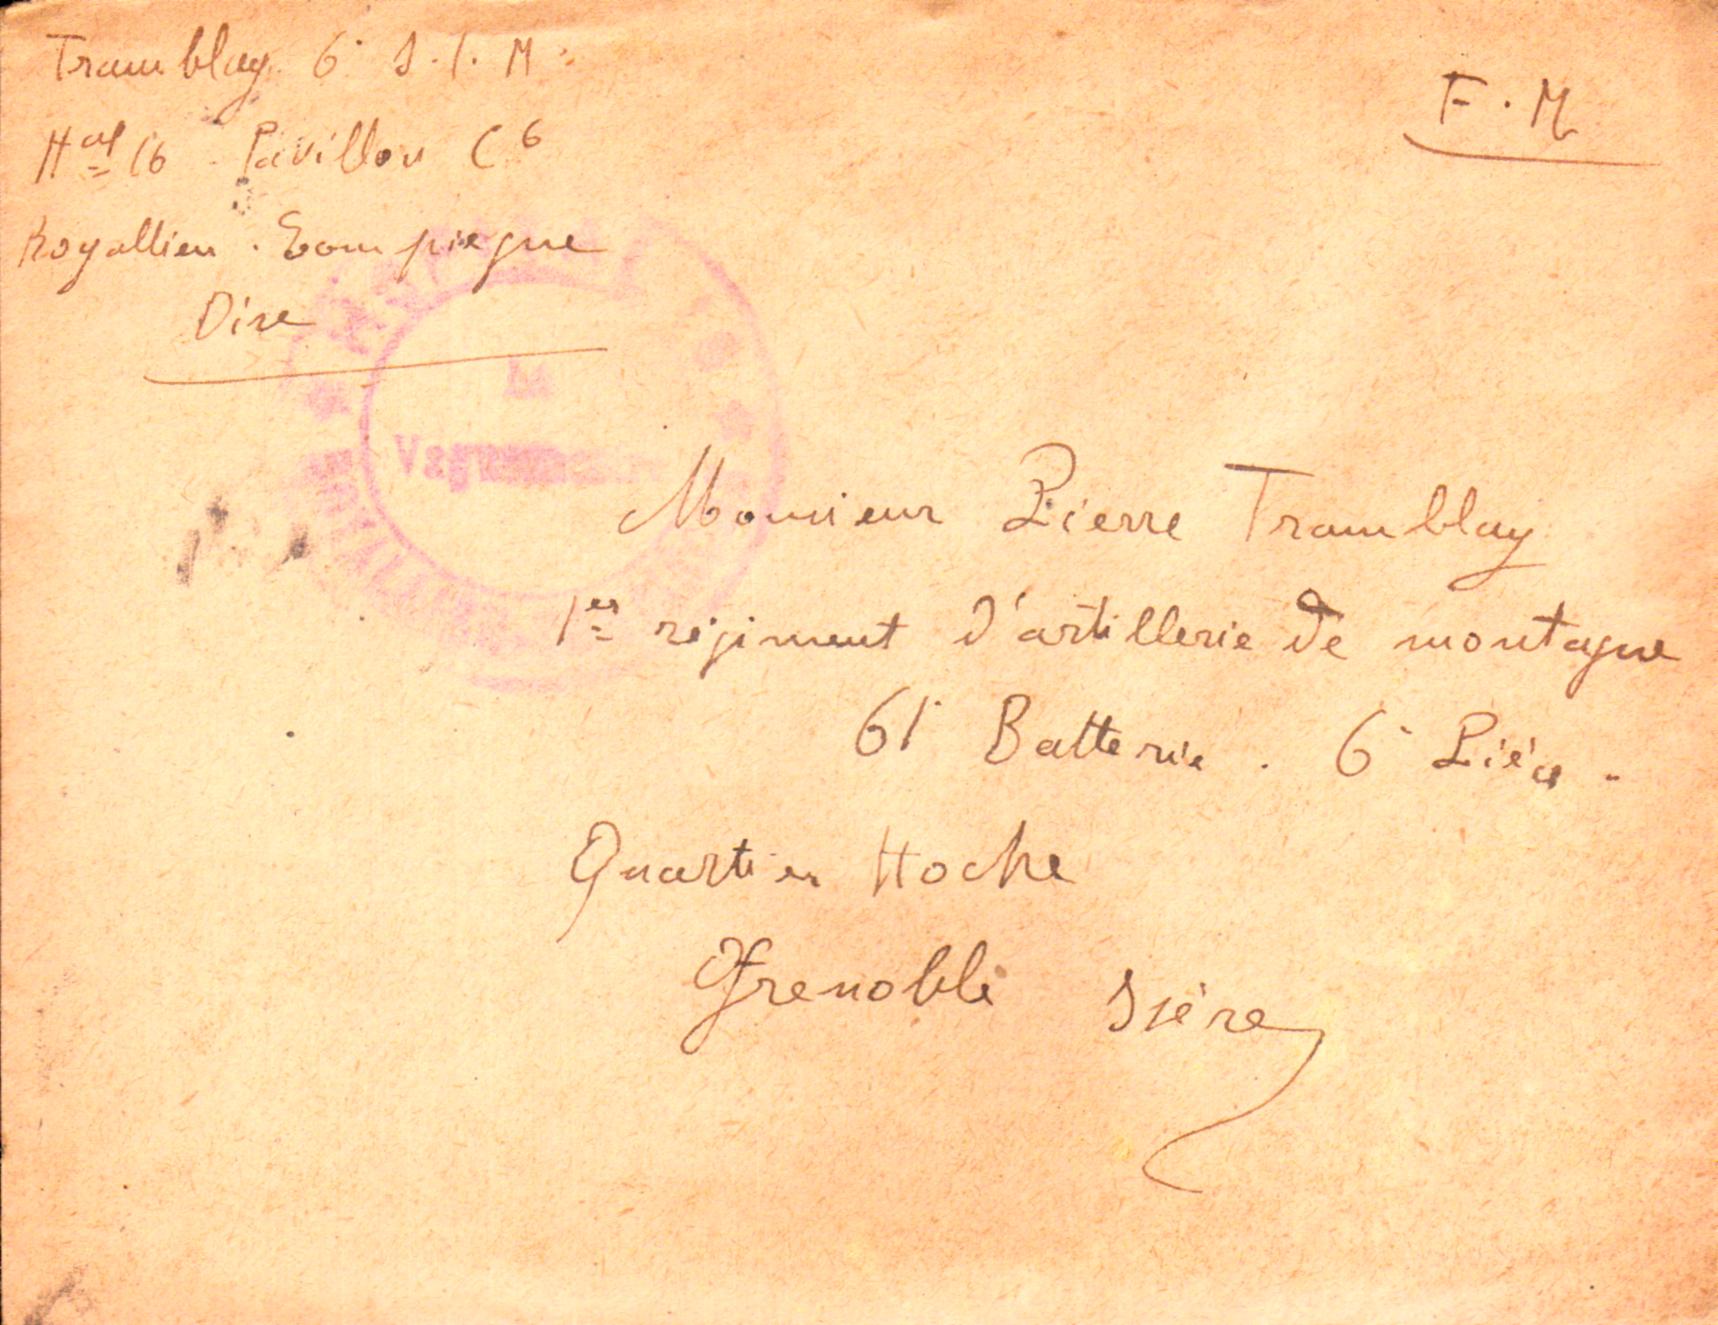 Tramblay. 6e S.I.M.
Hal 16 - Pavillon C6
Royallieu . Compiegne
Oise
F.M
Le
Vaguemestre
ROYALLIEU
Monsieur Pierre Tramblay
1er régiment d'artillerie de montagne
61e Batterie . 6e Pièce .
Quartier Hoche
Grenoble Isère